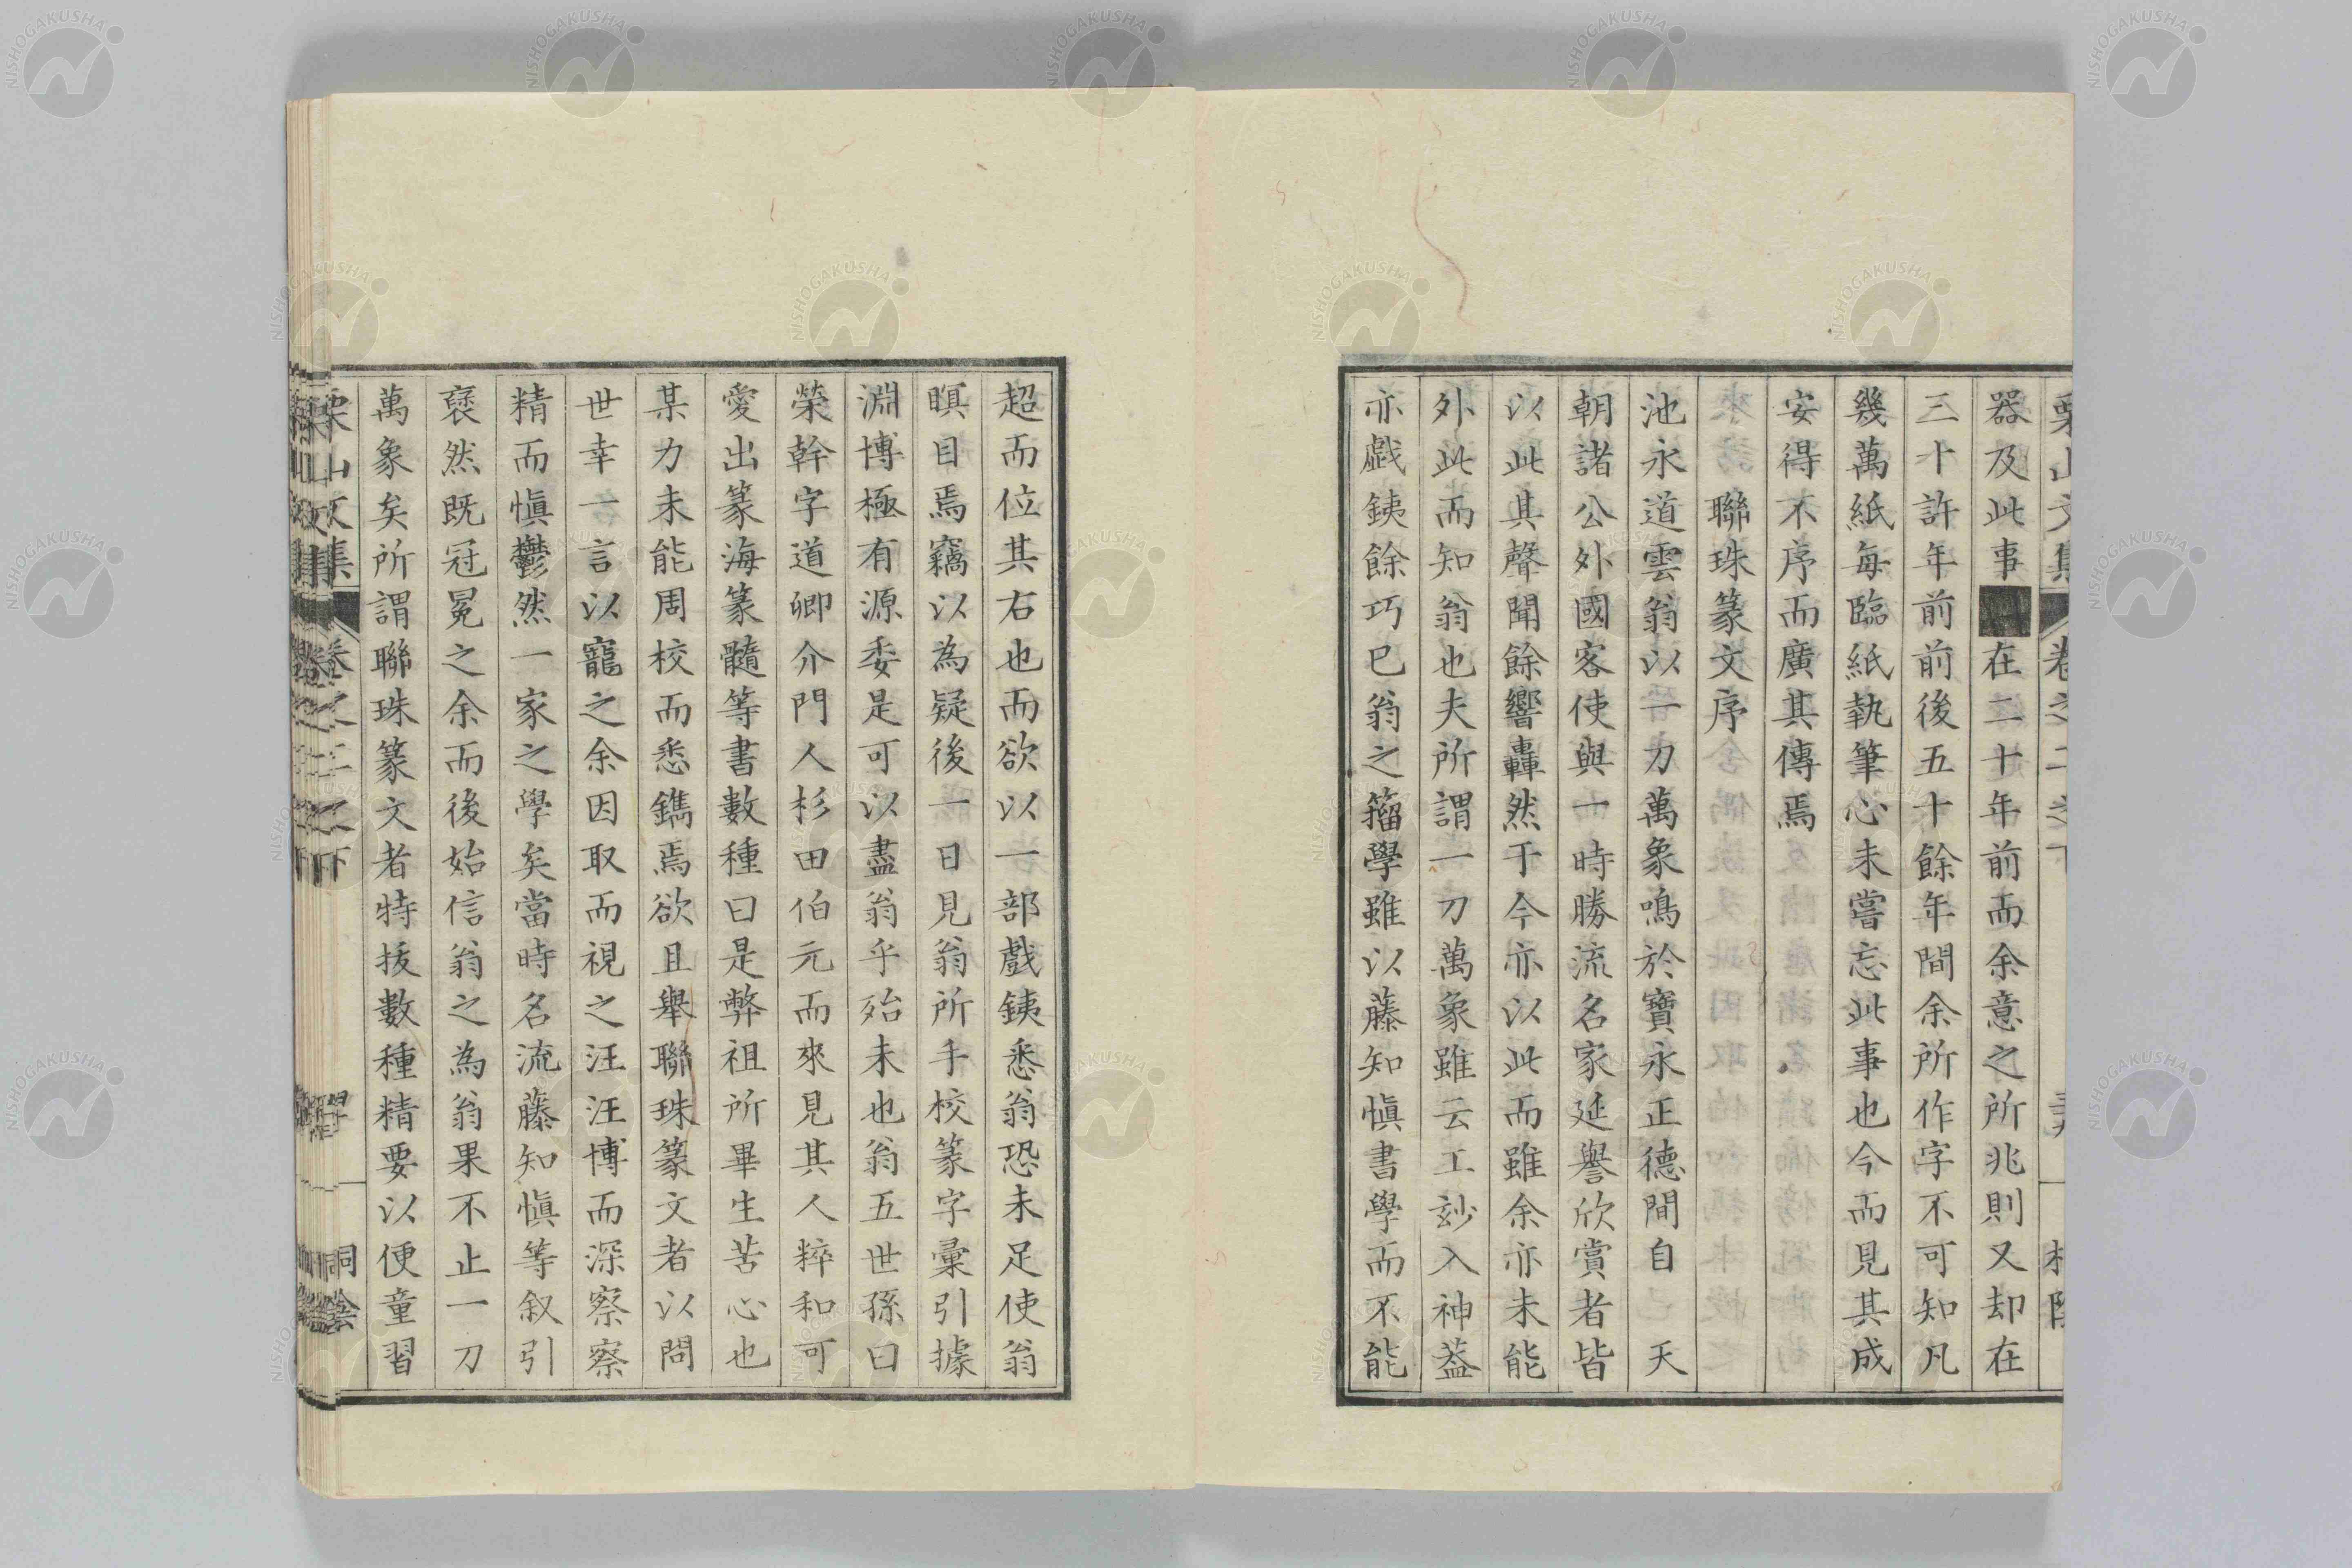 器及此事■在二十年前而余意之所兆則又却在
三十許年前前後五十餘年間余所作字不可知凡
幾萬紙每臨紙執筆心未嘗忘此事也今而見其成
安得不序而廣其傳焉
聯珠篆文序
池永道雲翁以一刀萬象鳴於寶永正德間自 天
朝諸公外國客使與一時勝流名家延譽欣賞者皆
以此其聲聞餘響轟然于今亦以此而雖余亦未能
外此而知翁也夫所謂一刀萬象雖云工玅入神葢
亦戯銕餘巧巳翁之籒學雖以藤知愼書學而不能
超而位其右也而欲以一部戲銕悉翁恐未足使翁
瞑目焉竊以為疑後一日見翁所手校篆字彙引據
淵博極有源委是可以盡翁乎殆未也翁五世孫曰
榮幹字道卿介門人杉田伯元而來見其人粹和可
愛出篆海篆髓等書數種曰是弊祖所畢生苦心也
某力未能周校而悉鐫焉欲且舉聯珠篆文者以問
世幸一言以寵之余因取而視之汪汪博而深察察
精而愼鬱然一家之學矣當時名流藤知愼等叙引
褎然既冠冕之余而後始信翁之為翁果不止一刀
萬象矣所謂聯珠篆文者特拔數種精要以便童習